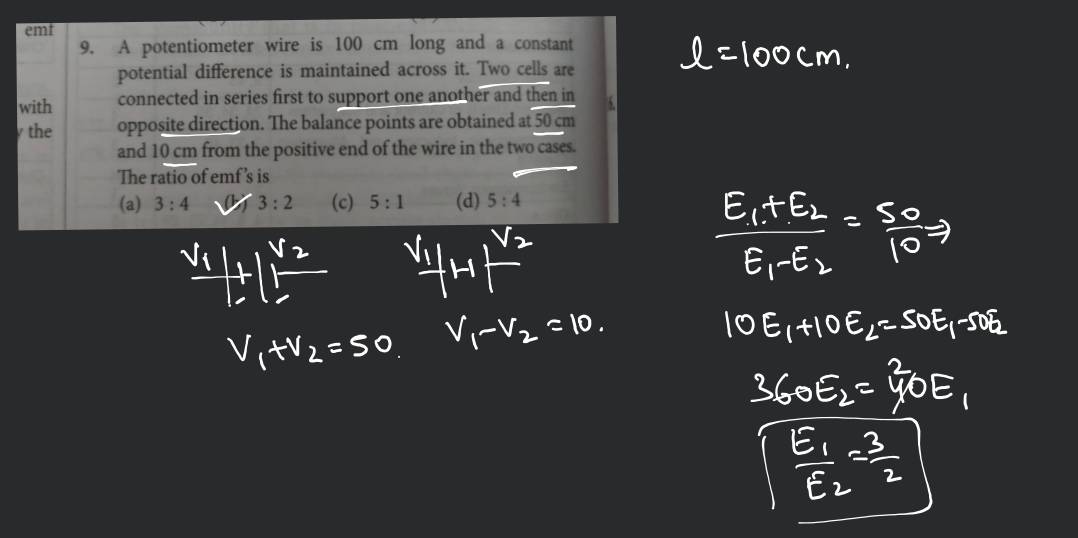 emf
with
y the
9. A potentiometer wire is 100 cm long and a constant
potential difference is maintained across it. Two cells are
connected in series first to support one another and then in
opposite direction. The balance points are obtained at 50 cm
and 10 cm from the positive end of the wire in the two cases.
The ratio of emf's is
(a) 3 : 4 (b) 3 : 2 (c) 5 : 1 (d) 5 : 4
l = 100 cm.
V1 V2
V1 V2
V1+V2 = 50.
V1-V2 = 10.
E1+E2 / E1-E2 = 50/10 ⇒
10E1+10E2 = 50E1-50E2
360E2 = 240E1
E1/E2 = 3/2